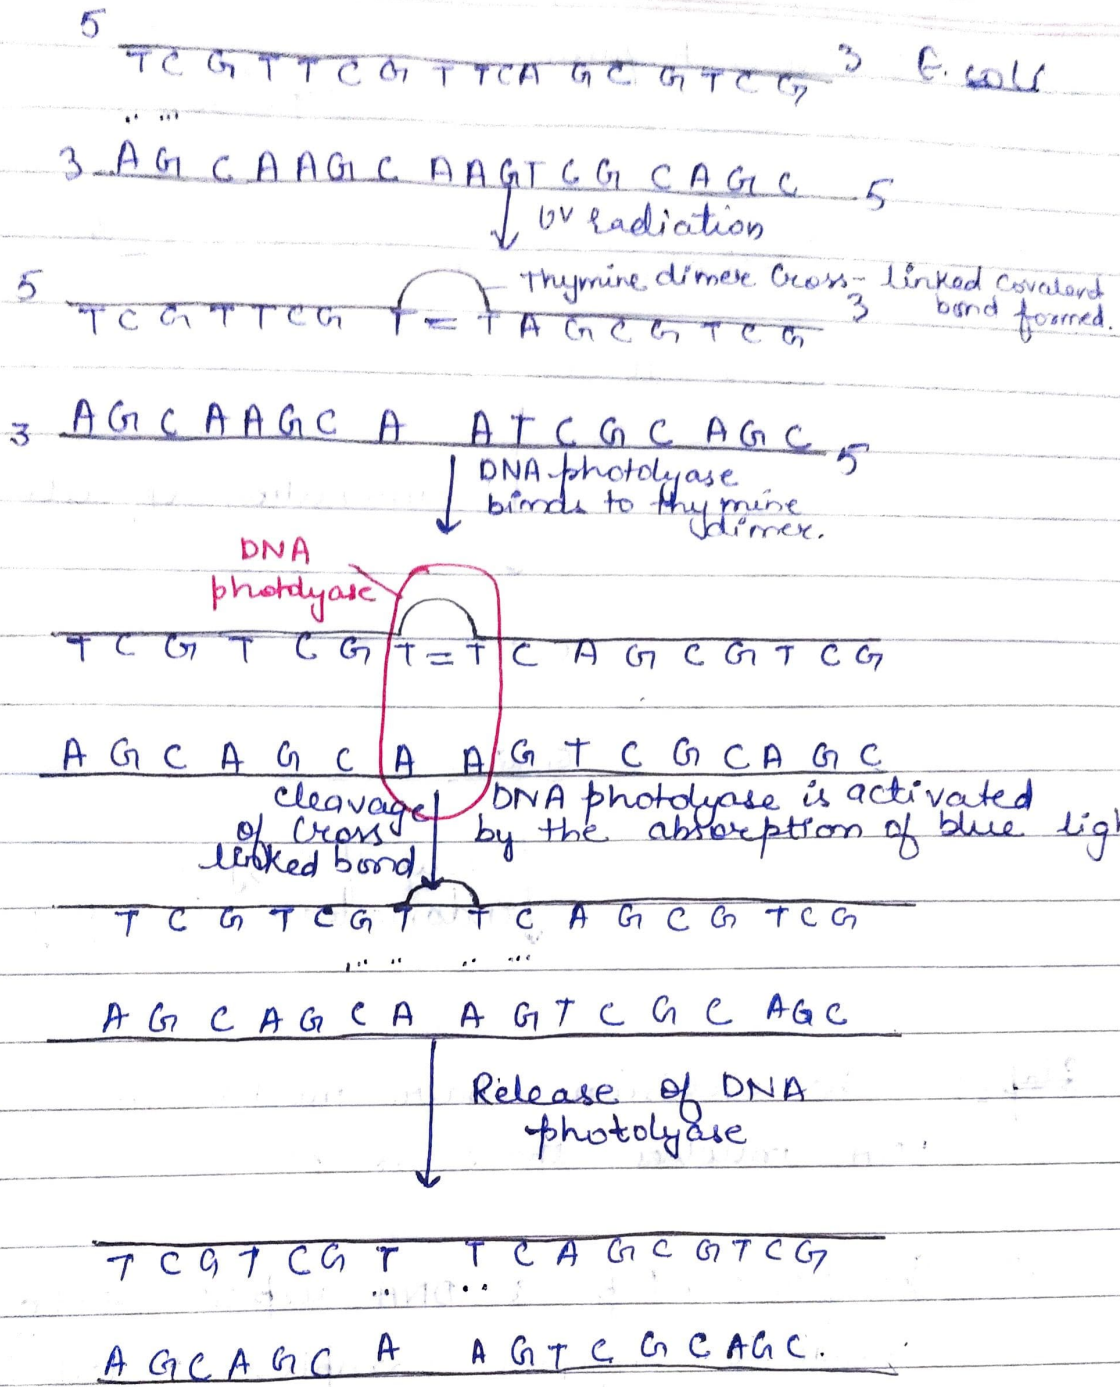 5
TCGTTCGTTCAGCGTCG 3 E. coli
3 AGCAAGCAAGTCGCAGC 5
UV radiation
5 Thymine dimer Cross- linked covalent
TCGTTCG T=TAGCGTCG 3 bond formed.
3 AGCAAGC A ATCGCAGC 5
DNA photolyase
binds to thymine
dimer.
DNA
photolyase
TCGTCGT=TCAGCGTCG
AGCAGCAAGTCGCAGC
cleavage DNA photolyase is activated
of cross by the absorption of blue ligh
linked bond
TCGTCGT TCAGCGTCG
AGCAGCA AGTCGCAGC
Release of DNA
photolyase
TCGTCGT TCAGCGTCG
AGCAGCA AGTCGCAGC.